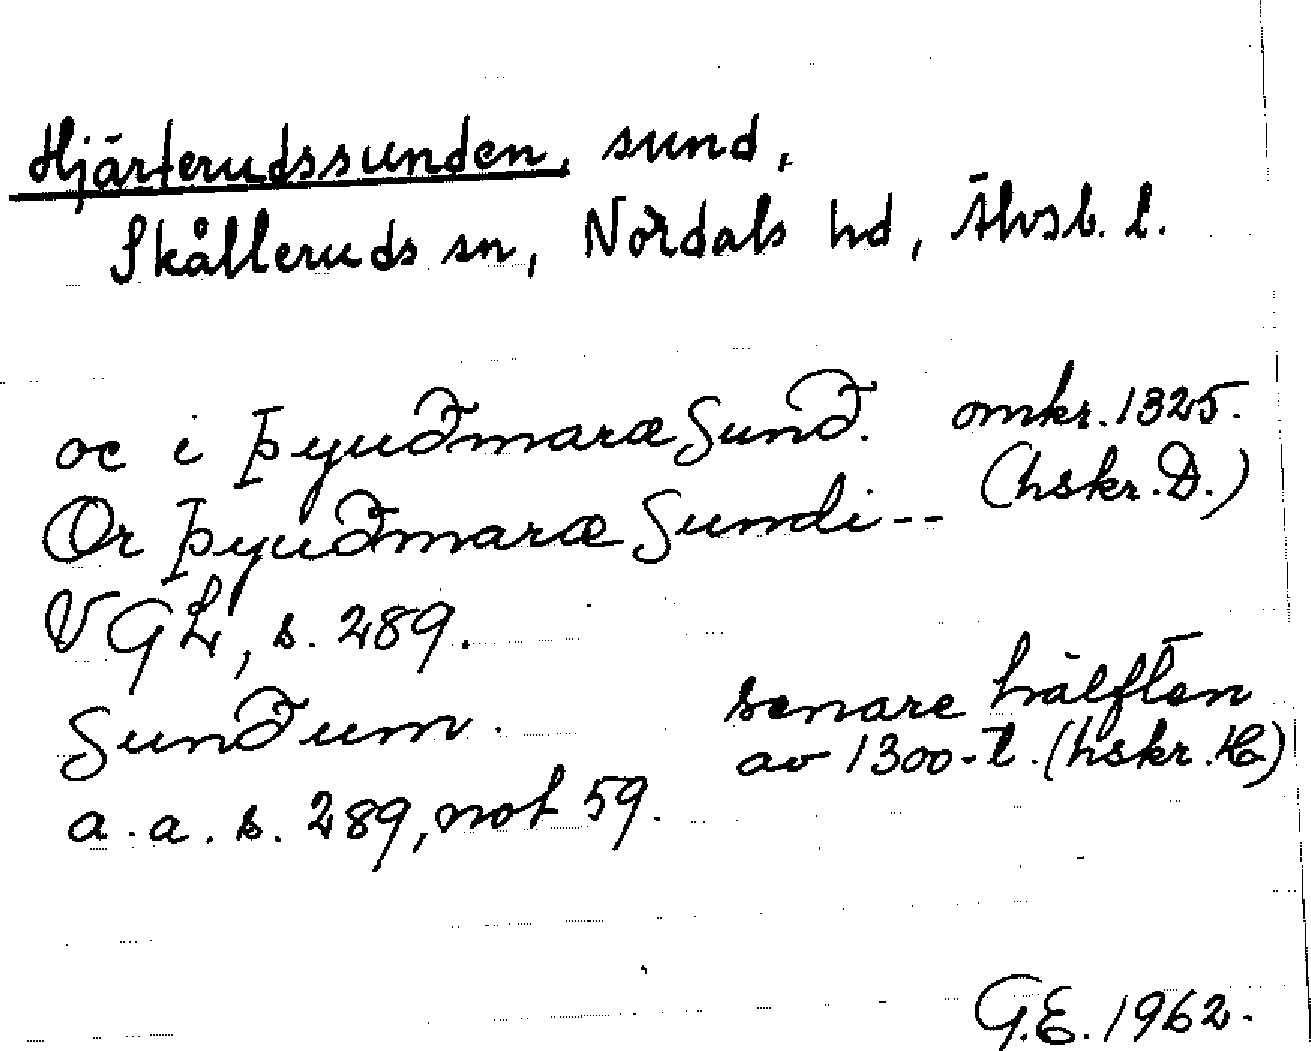 Hjärterudssunden, sund,
Skålleruds sn, Nordals hd, Älvsb. l.
oc i þyuðmaræ sunð. omkr. 1325.
Or þyuðmaræ sundi -- (hskr. D.)
VGL, s. 289.
sunðum. senare hälften
av 1300-t. (hskr. H)
a. a. s. 289, not 59.
G.E. 1962.